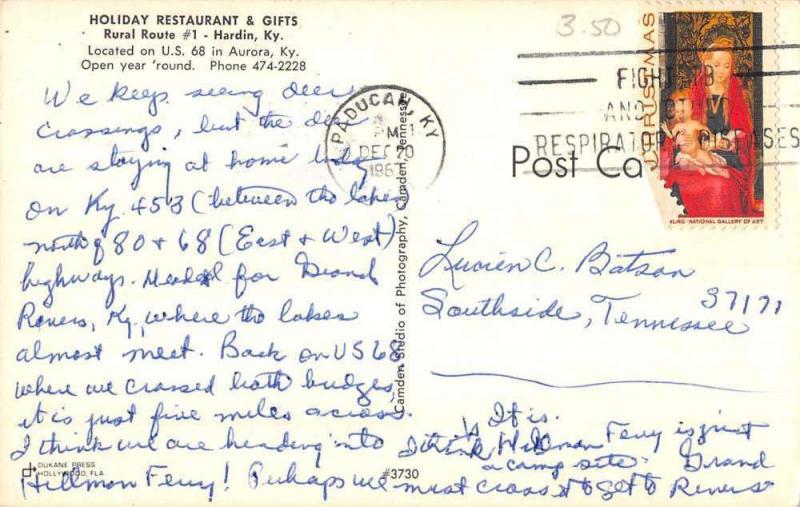 HOLIDAY RESTAURANT & GIFTS
Rural Route #1 - Hardin, Ky.
Located on U.S. 68 in Aurora, Ky.
Open year 'round. Phone 474-2228
We keep seeing deer
crossings, but the deer
are staying at home today
on Ky. 453 (between the lakes
north of 80 & 68 (East & West)
highways. Headed for Grand
Rivers, Ky., where the lakes
almost meet. Back on US 68
where we crossed both bridges,
it is just five miles across.
I think we are heading into
Hillmon Ferry! Perhaps we must cross it to get to Rivers
It is.
I think Hillmon Ferry is just
a camp site Grand
DUKANE PRESS
HOLLYWOOD, FLA
#3730
Camden Studio of Photography, Camden, Tennessee
PADUCAH, KY
PM
DEC 20
3.50
CHRISTMAS
FIGHT TB
AND OTHER
RESPIRATORY DISEASES
MEMLING - NATIONAL GALLERY OF ART
Post Ca
Lucien C. Batson
Southside, Tennessee
37171